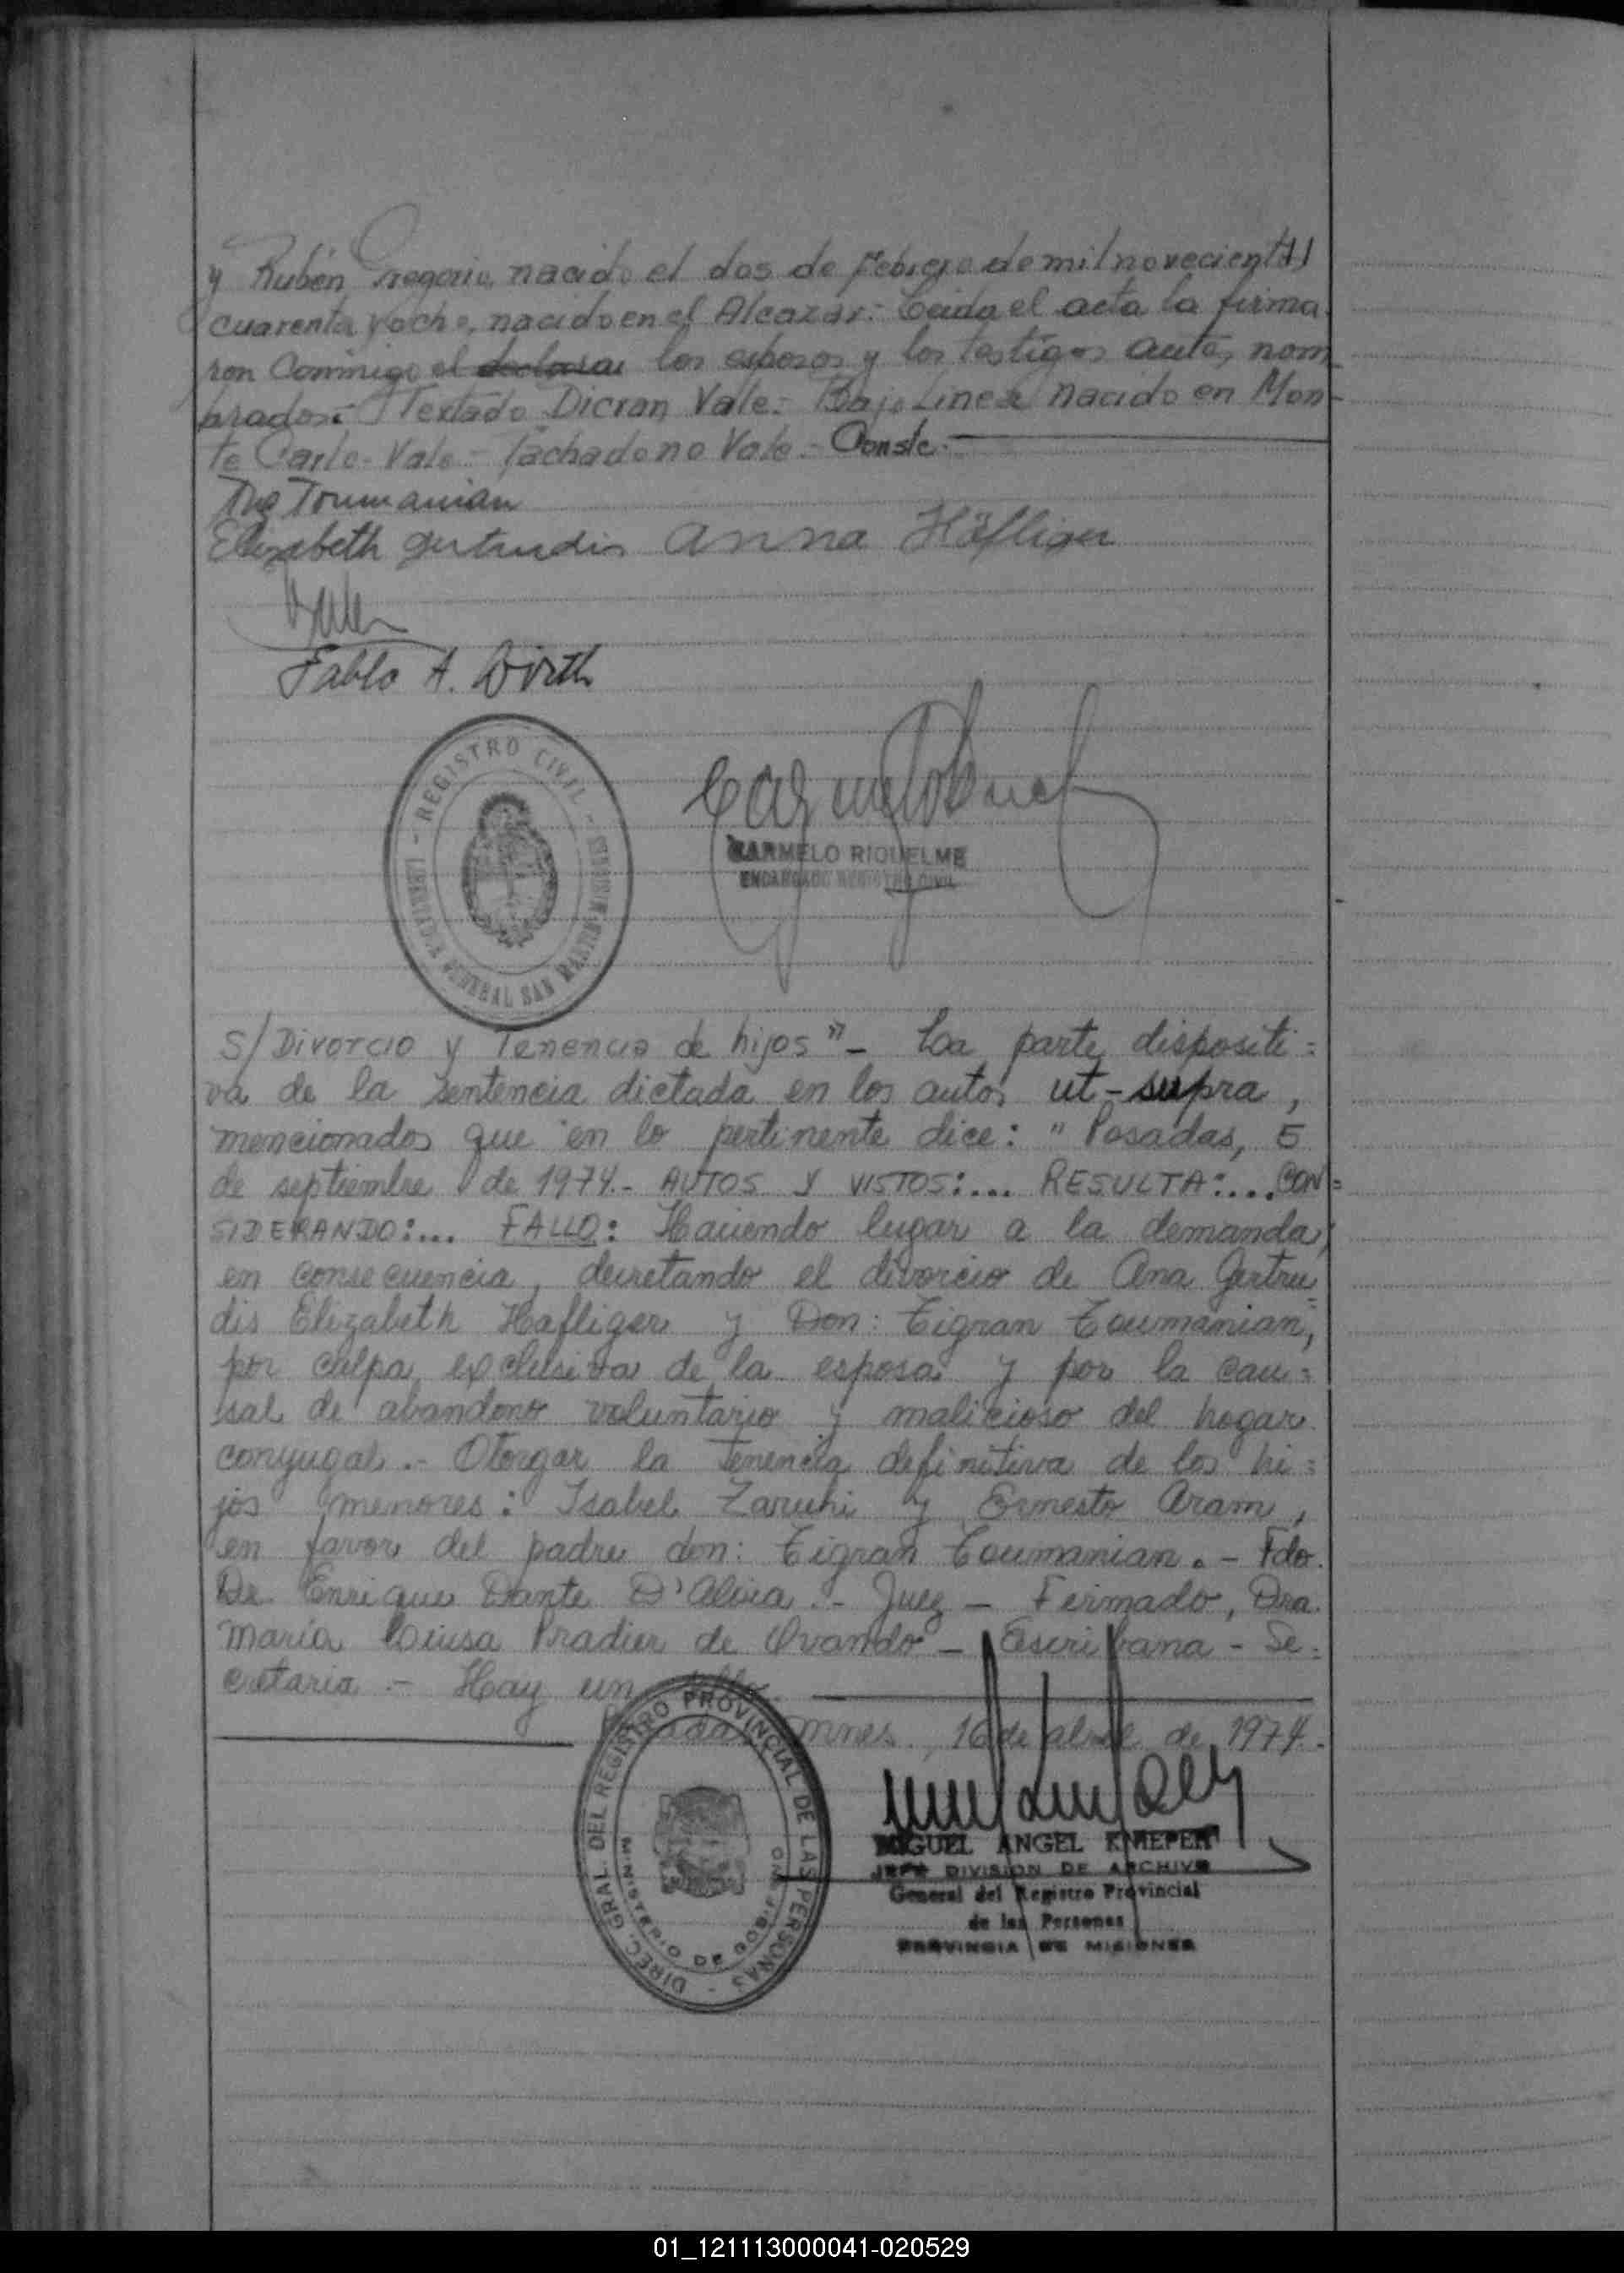 y Rubén Gregorio, nacido el dos de Febrero de mil novecientos
cuarenta y ocho, nacido en el Alcazar:- Leida el acta la firma
ron Conmigo el declara los esposos y los testigos antes nom
brados:- Textado Dicran Vale:- Bajo Linea nacido en Mon-
te Carlo- Vale- Tachado no Vale- Conste.-
Toumanian
Elizabeth gertrudis anna Häfliger
Pablo A. Wirth
- REGISTRO CIVIL -
GENERAL SAN MARTIN MISIONES
CARMELO RIQUELME
ENCARGADO REGISTRO CIVIL
S/ Divorcio y Tenencia de hijos"- La parte dispositi=
va de la sentencia dictada en los autos ut-supra,
mencionados que en lo pertinente dice: "Posadas, 5
de septiembre de 1974.- AUTOS Y VISTOS:... RESULTA:... CON=
SIDERANDO:... FALLO: Haciendo lugar a la demanda,
en consecuencia, decretando el divorcio de Ana Gertru=
dis Elizabeth Hafliger y Don: Tigran Toumanian,
por culpa exclusiva de la esposa y por la cau=
sal de abandono voluntario y malicioso del hogar
conyugal.- Otorgar la Tenencia definitiva de los hi=
jos menores: Isabel Zaruhi y Ernesto Aram,
en favor del padre don: Tigran Toumanian.- Fdo.
Dr. Enrique Dante D'Alvia.- Juez - Firmado, Dra.
Maria Luisa Pradier de Ovando - Escribana - Se=
cretaria.- Hay un
16 de abril de 1974.-
DIREC. GRAL. DEL REGISTRO PROVINCIAL DE LAS PERSONAS -
MINISTERIO DE GOBIERNO
MIGUEL ANGEL KNIEPER
JEFE DIVISION DE ARCHIVO
General del Registro Provincial
de las Personas
PROVINCIA DE MISIONES
01_121113000041-020529